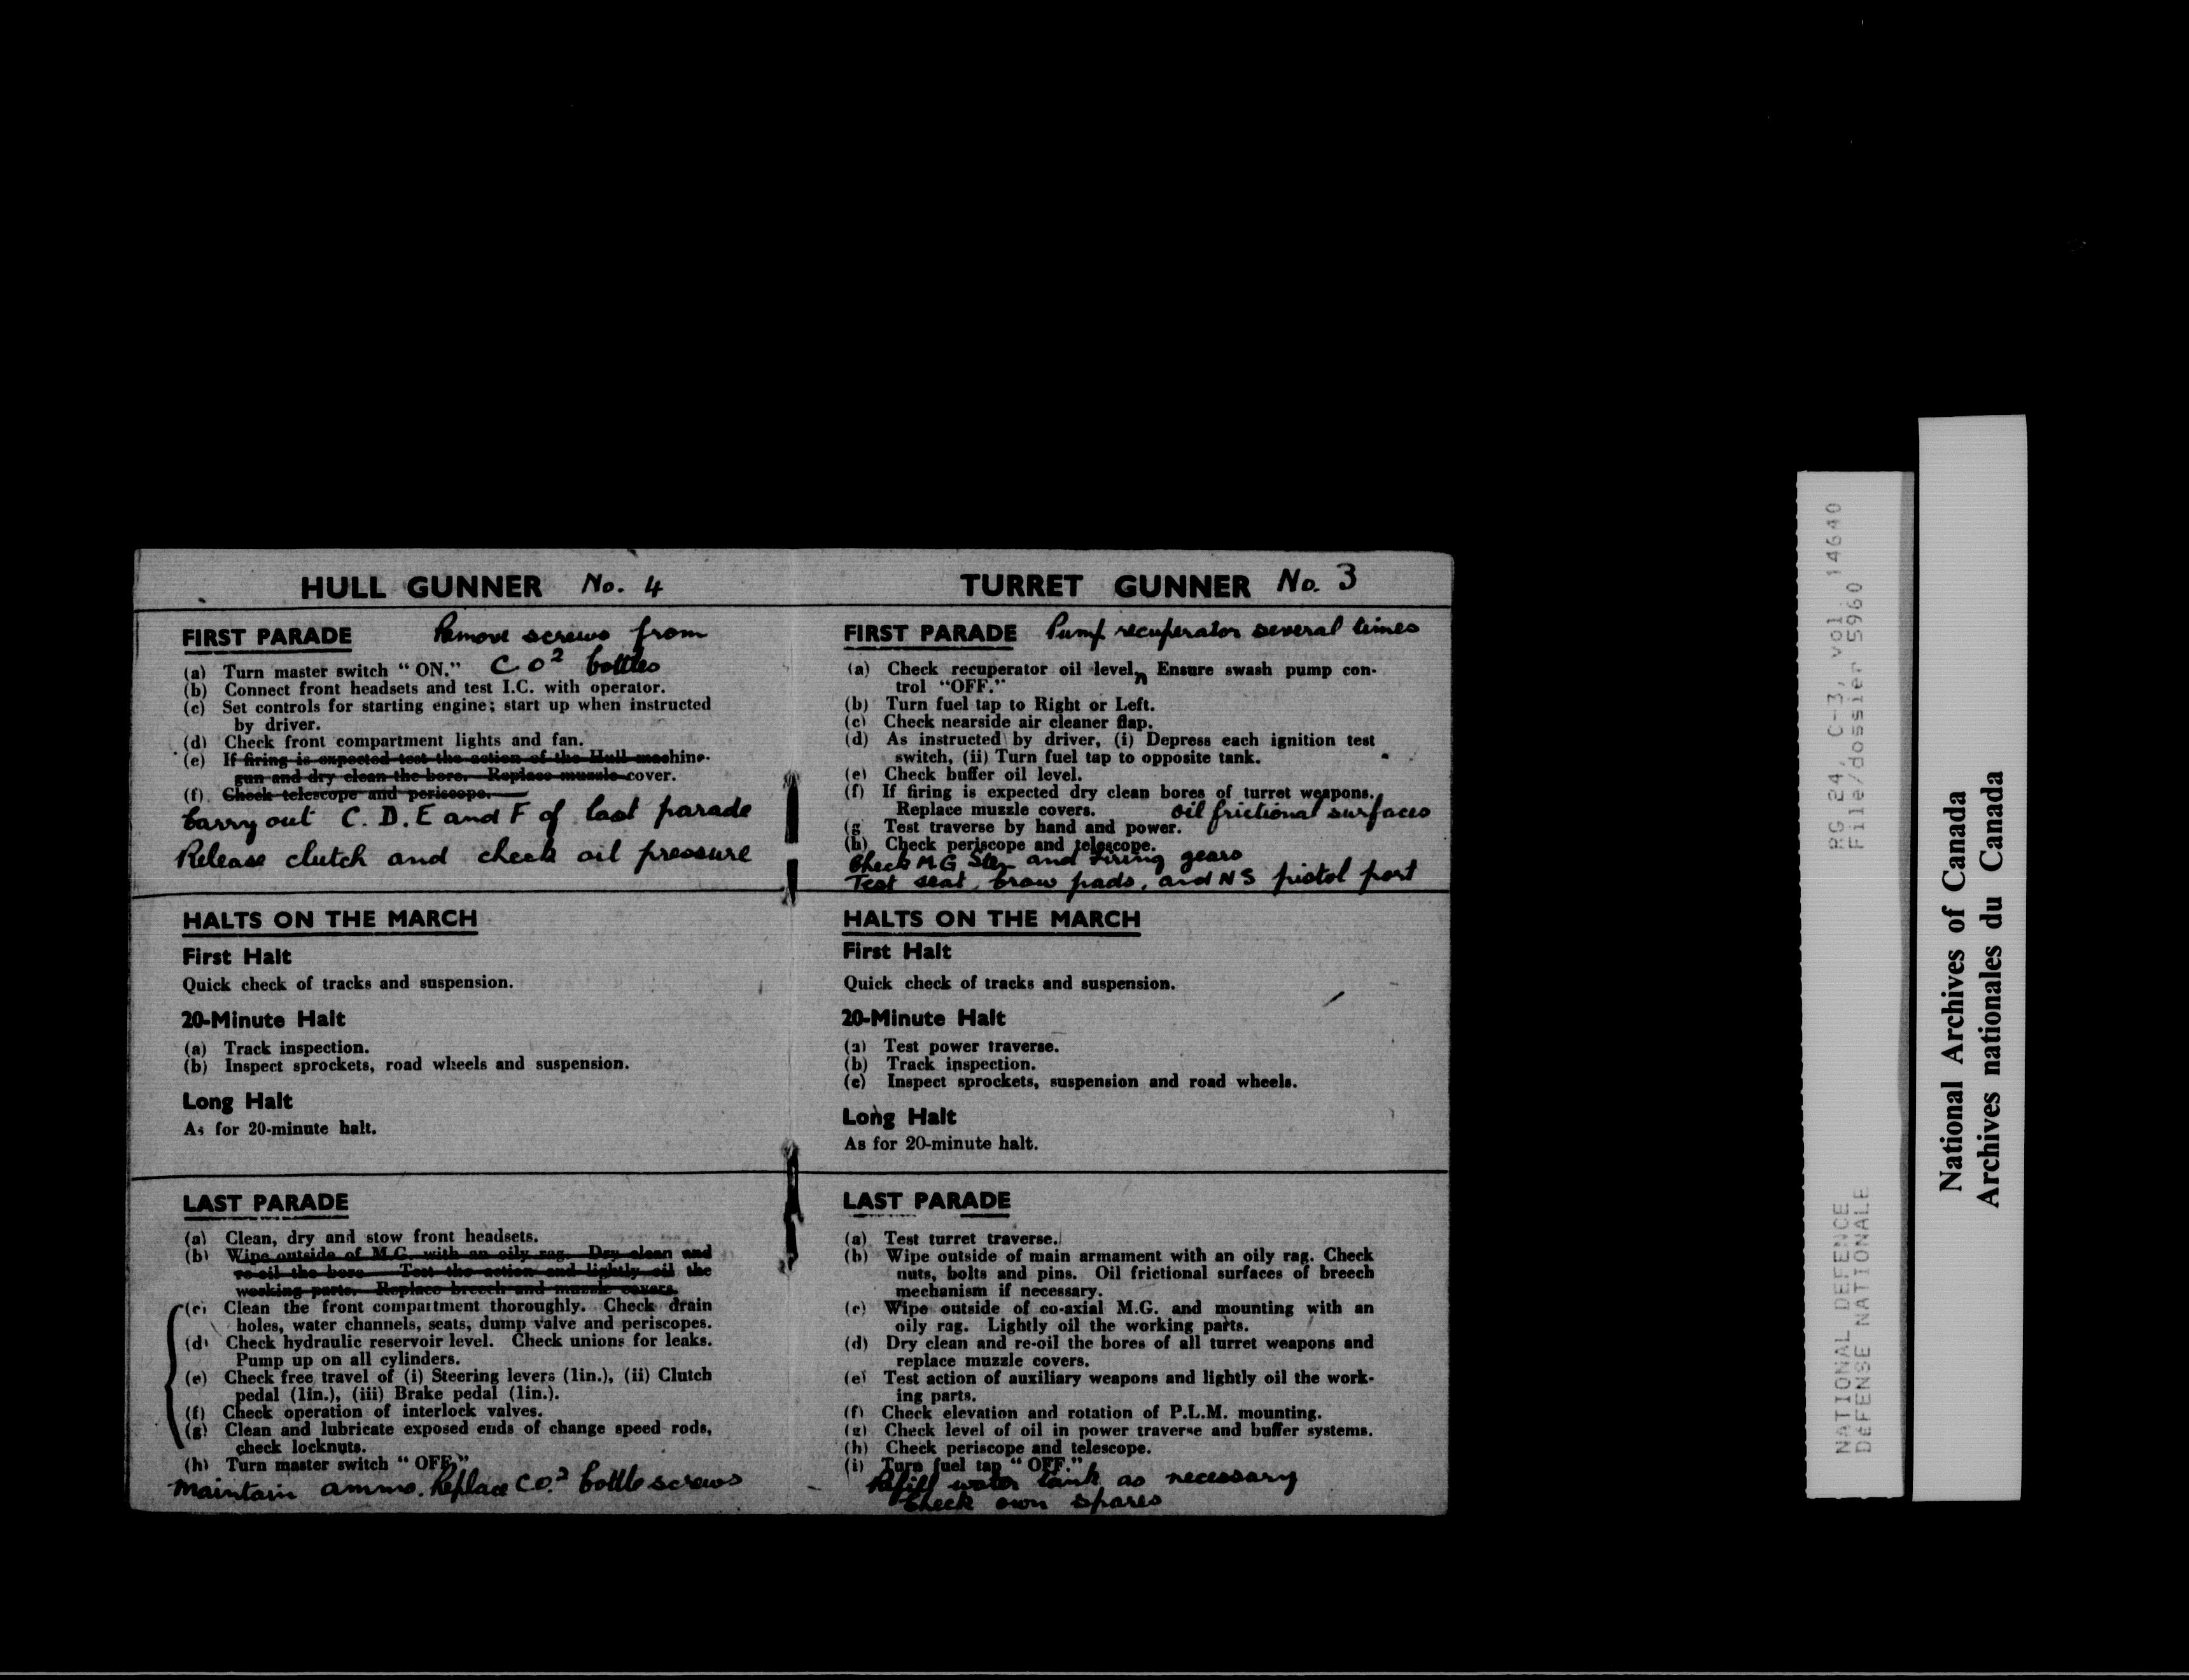 HULL GUNNER No. 4
FIRST PARADE Remove screws from
(a) Turn master switch "ON." CO² bottles
(b) Connect front headsets and test I.C. with operator.
(c) Set controls for starting engine; start up when instructed
by driver.
(d) Check front compartment lights and fan.
(e) If firing is expected test the action of the Hull machine-
gun and dry clean the bore. Replace muzzle cover.
(f) Check telescope and periscope.
Carry out C. D. E and F of last parade
Release clutch and check oil pressure
HALTS ON THE MARCH
First Halt
Quick check of tracks and suspension.
20-Minute Halt
(a) Track inspection.
(b) Inspect sprockets, road wheels and suspension.
Long Halt
As for 20-minute halt.
LAST PARADE
(a) Clean, dry and stow front headsets.
(b) Wipe outside of M.G. with an oily rag. Dry clean and
re-oil the bore Test the action and lightly oil the
working parts. Replace breech and muzzle covers.
(c) Clean the front compartment thoroughly. Check drain
holes, water channels, seats, dump valve and periscopes.
(d) Check hydraulic reservoir level. Check unions for leaks.
Pump up on all cylinders.
(e) Check free travel of (i) Steering levers (1in.), (ii) Clutch
pedal (1in.), (iii) Brake pedal (1in.).
(f) Check operation of interlock valves.
(g) Clean and lubricate exposed ends of change speed rods,
check locknuts.
(h) Turn master switch "OFF."
Maintain ammo. Replace CO² bottle screws
TURRET GUNNER No. 3
FIRST PARADE Pump recuperator several times
(a) Check recuperator oil level, Ensure swash pump con-
trol "OFF."
(b) Turn fuel tap to Right or Left.
(c) Check nearside air cleaner flap.
(d) As instructed by driver, (i) Depress each ignition test
switch, (ii) Turn fuel tap to opposite tank.
(e) Check buffer oil level.
(f) If firing is expected dry clean bores of turret weapons.
Replace muzzle covers. Oil frictional surfaces
(g) Test traverse by hand and power.
(h) Check periscope and telescope.
Check M G Sten and Firing gears
Test seat, brow pads, and N S pistol port
HALTS ON THE MARCH
First Halt
Quick check of tracks and suspension.
20-Minute Halt
(a) Test power traverse.
(b) Track inspection.
(c) Inspect sprockets, suspension and road wheels.
Long Halt
As for 20-minute halt.
LAST PARADE
(a) Test turret traverse.
(b) Wipe outside of main armament with an oily rag. Check
nuts, bolts and pins. Oil frictional surfaces of breech
mechanism if necessary.
(c) Wipe outside of co-axial M.G. and mounting with an
oily rag. Lightly oil the working parts.
(d) Dry clean and re-oil the bores of all turret weapons and
replace muzzle covers.
(e) Test action of auxiliary weapons and lightly oil the work-
ing parts.
(f) Check elevation and rotation of P.L.M. mounting.
(g) Check level of oil in power traverse and buffer systems.
(h) Check periscope and telescope.
(i) Turn fuel tap "OFF."
Refill water tank as necessary
Check own spares
NATIONAL DEFENCE RG 24, C-3, vol. 14640
DEFENSE NATIONALE File/dossier 5960
National Archives of Canada
Archives nationales du Canada